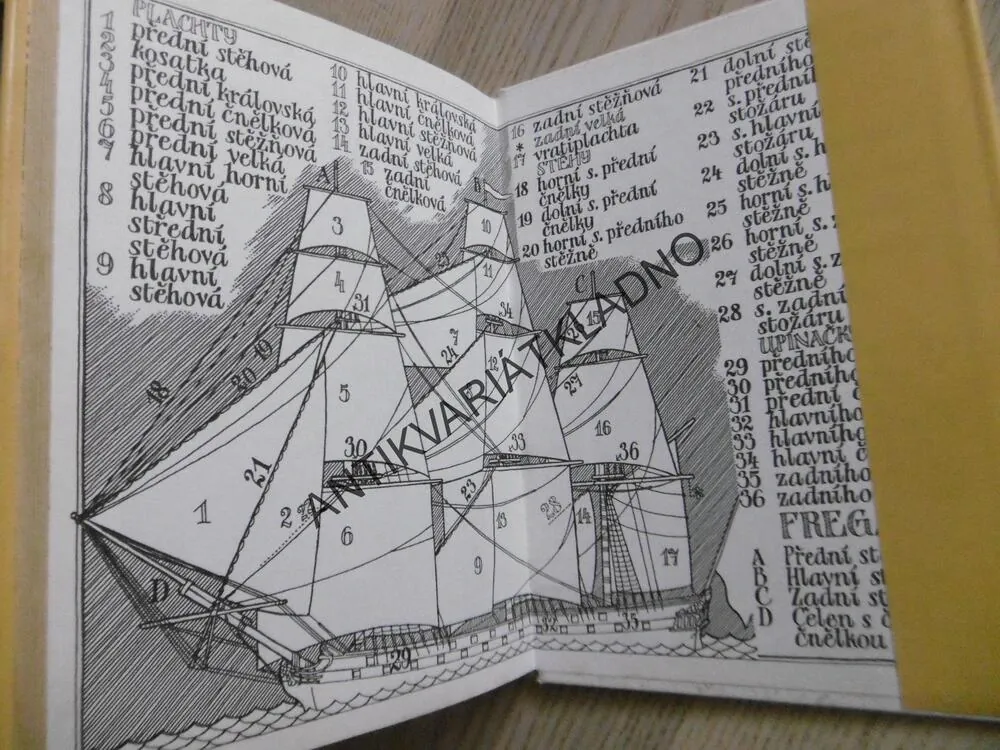 PLACHTY
1 přední stěhová
2 kosatka
3 přední královská
4 přední čnělková
5 přední stěžňová
6 přední velká
7 hlavní horní
stěhová
8 hlavní
střední
stěhová
9 hlavní
stěhová
10 hlavní královská
11 hlavní čnělková
12 hlavní stěžňová
13 hlavní velká
14 zadní stěhová
15 zadní
čnělková
16 zadní stěžňová
* zadní velká
17 vratiplachta
STĚHY
18 horní s. přední
čnělky
19 dolní s. přední
čnělky
20 horní s. předního
stěžně
21 dolní
předního
22 s. přední
stožáru
23 s. hlavní
stožáru
24 dolní s. h
stěžně
25 horní s. h
stěžně
26 horní s. z
stěžně
27 dolní s. z
stěžně
28 s. zadní
stožáru
29 předního
30 předního
31 přední
32 hlavního
33 hlavního
34 hlavní č
35 zadního
36 zadního
A Přední
B Hlavní
C Zadní
D Čelen s
čnělkou
A
B
C
D
3
4
31
10
11
25
34
7
24
12
15
26
27
16
36
5
30
18
20
19
21
1
2
22
6
33
23
13
9
28
14
17
*
29
32
35
ANTIKVARIÁTKLADNO